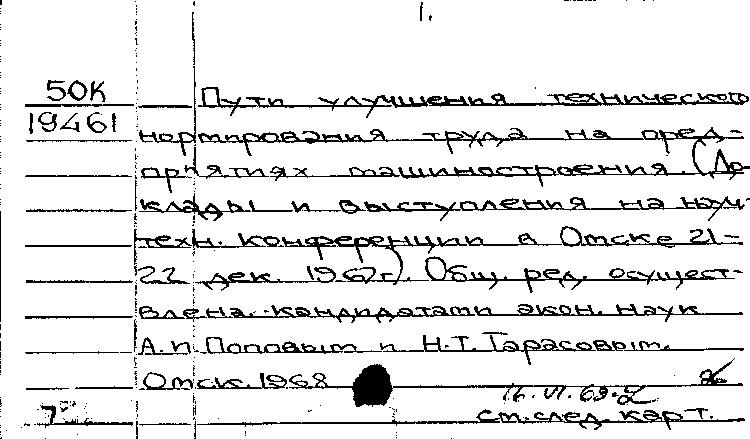 1.
50К Пути улучшения технического
19461 нормирования труда на пред-
приятиях машиностроения. (До-
клады и выступления на науч.-
техн. конференции в Омске 21-
22 дек. 1967г.). Общ. ред. осущест-
влена кандидатами экон. наук
А.П. Поповым и Н.Т. Тарасовым.
Омск. 1968
16.VI.69-
см. след. карт.